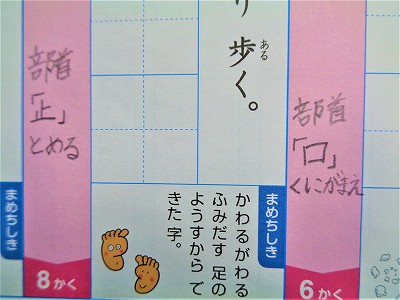 部首
「口」
くにがまえ
6かく
り歩く。
ある
まめちしき
かわるがわる
ふみだす 足の
ようすから て
きた 字。
部首
「止」
とめる
まめちしき
8かく